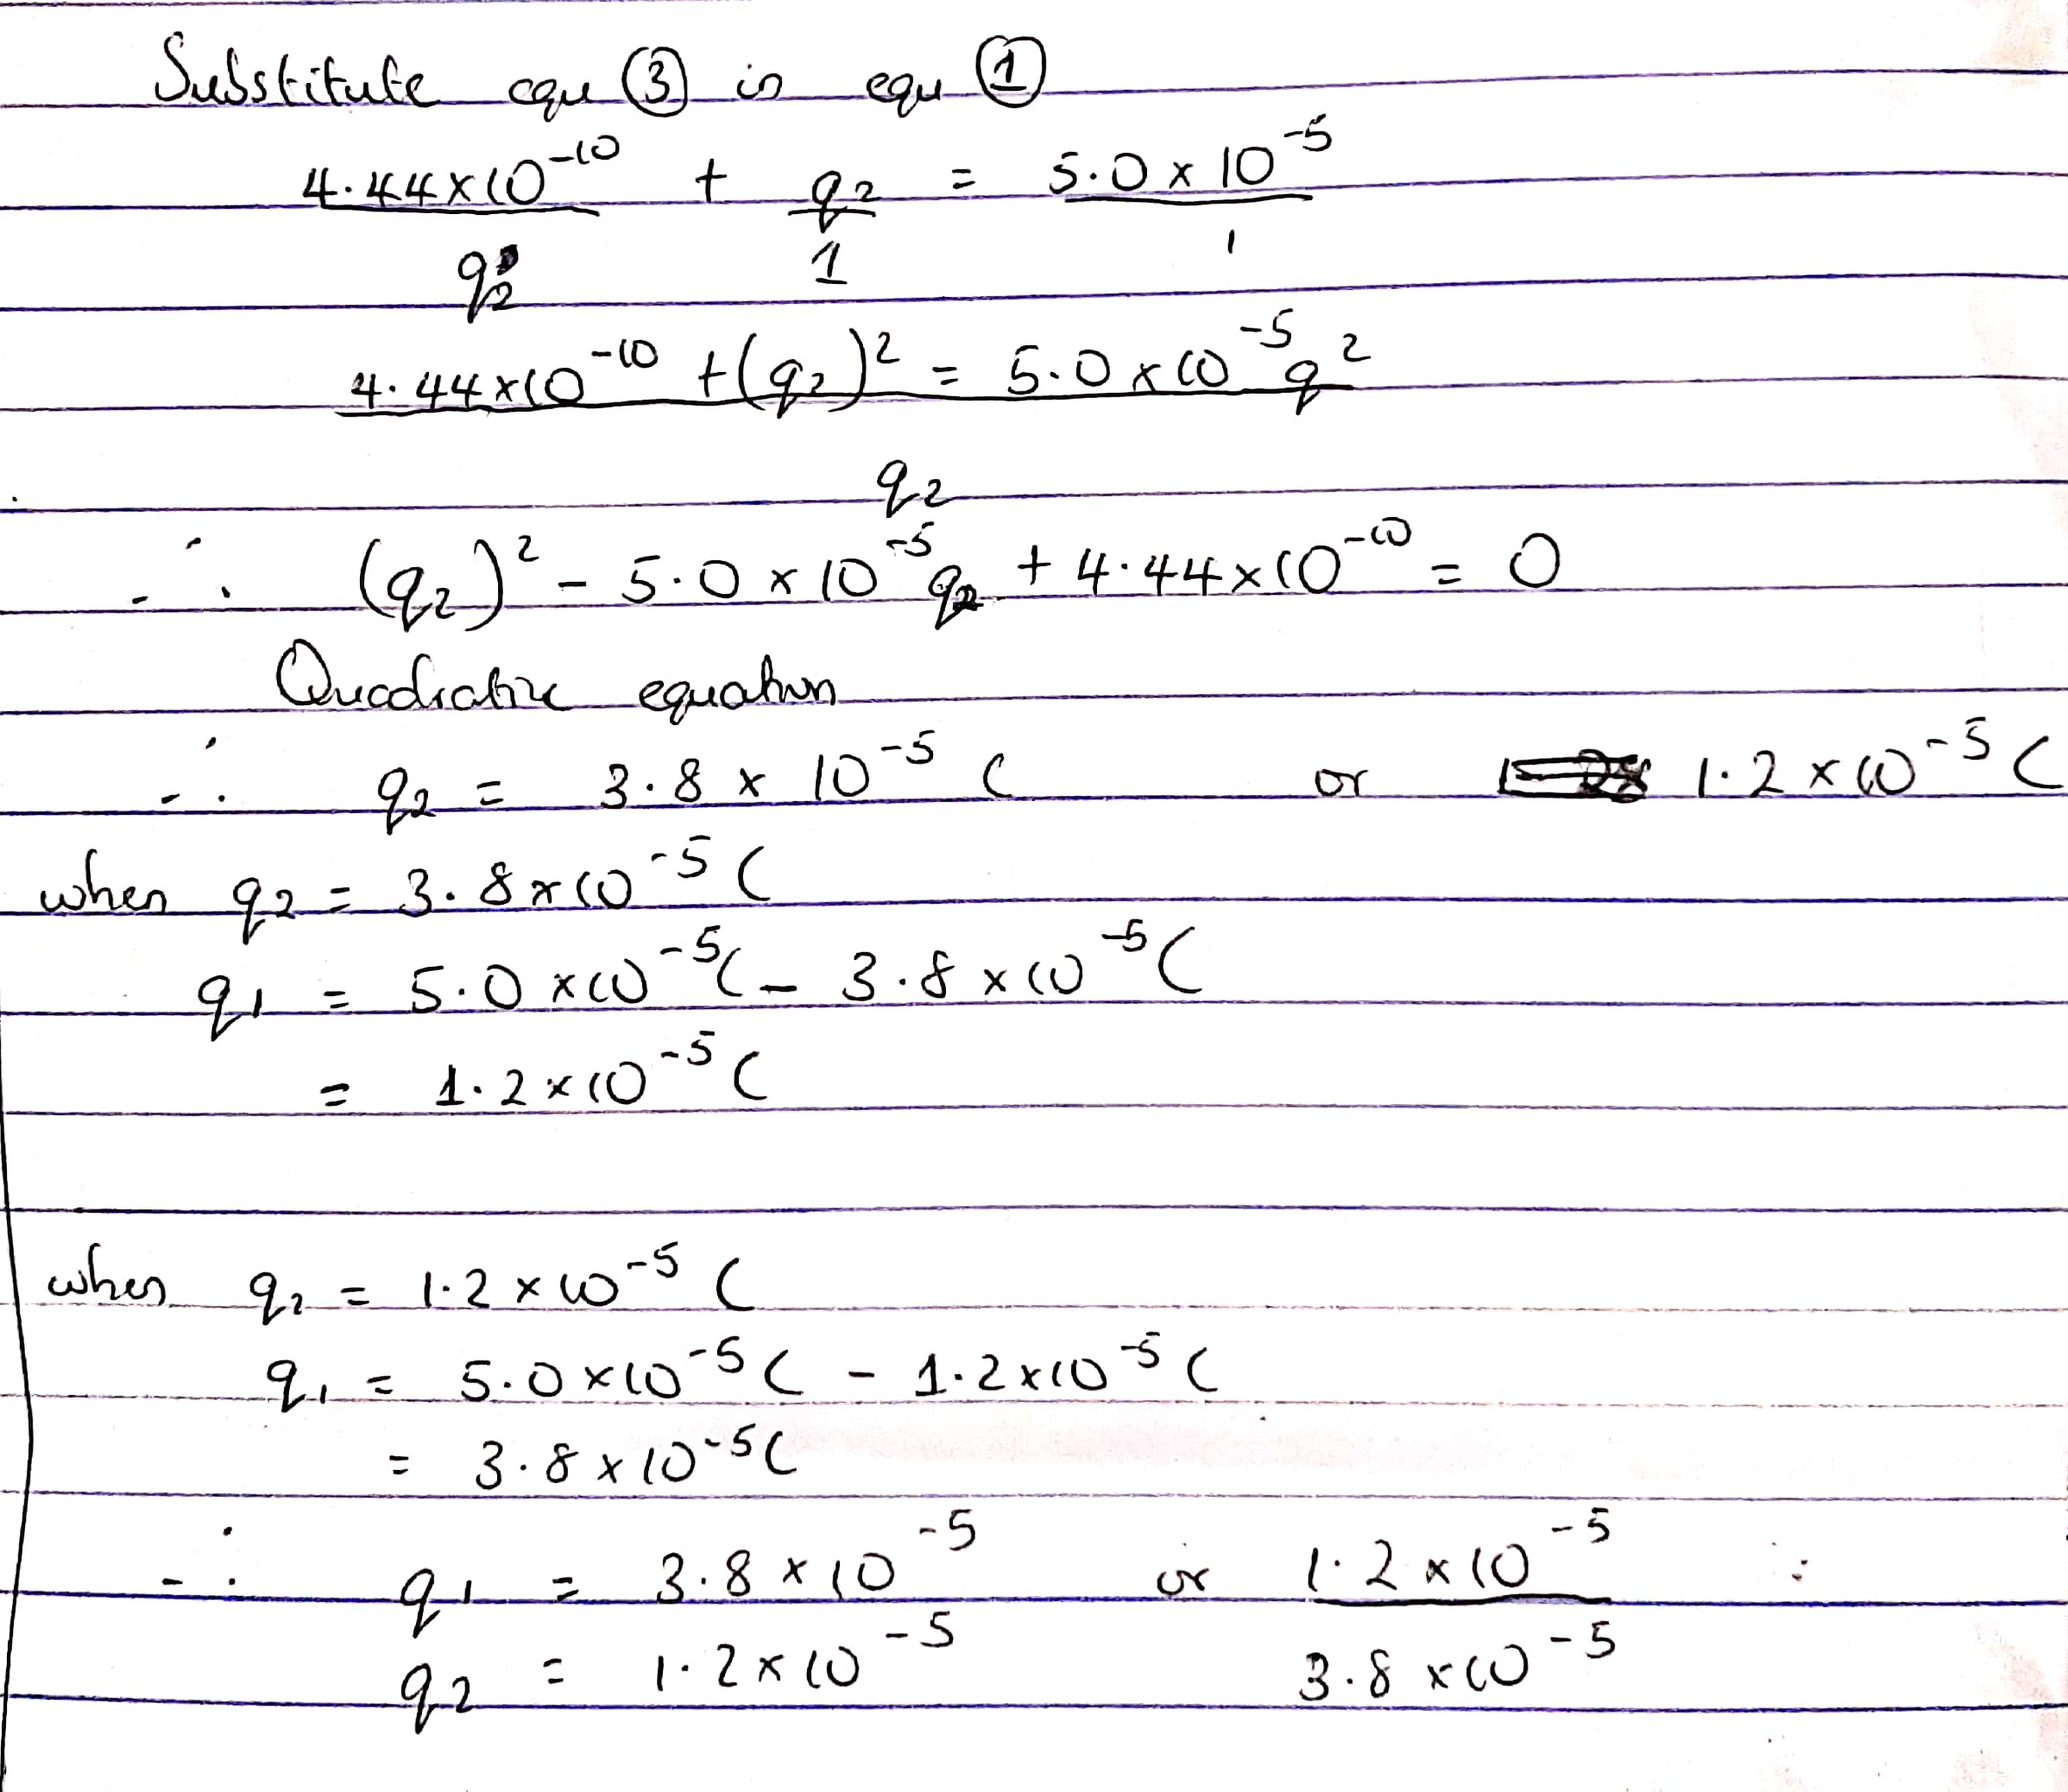 Substitute equ ③ in equ ①
4.44×10⁻¹⁰ + q₂ = 5.0 × 10⁻⁵
q₂ 1 1
4.44×10⁻¹⁰ + (q₂)² = 5.0 × 10⁻⁵ q²
q₂
∴ (q₂)² - 5.0 × 10⁻⁵ q₂ + 4.44×10⁻¹⁰ = 0
Quadratic equation
∴ q₂ = 3.8 × 10⁻⁵ C or 1.2 × 10⁻⁵ C
when q₂ = 3.8×10⁻⁵ C
q₁ = 5.0 ×10⁻⁵ C - 3.8 × 10⁻⁵ C
= 1.2×10⁻⁵ C
when q₂ = 1.2 × 10⁻⁵ C
q₁ = 5.0 ×10⁻⁵ C - 1.2×10⁻⁵ C
= 3.8 ×10⁻⁵ C
∴ q₁ = 3.8 × 10⁻⁵ or 1.2 × 10⁻⁵ :
q₂ = 1.2 × 10⁻⁵ 3.8 ×10⁻⁵